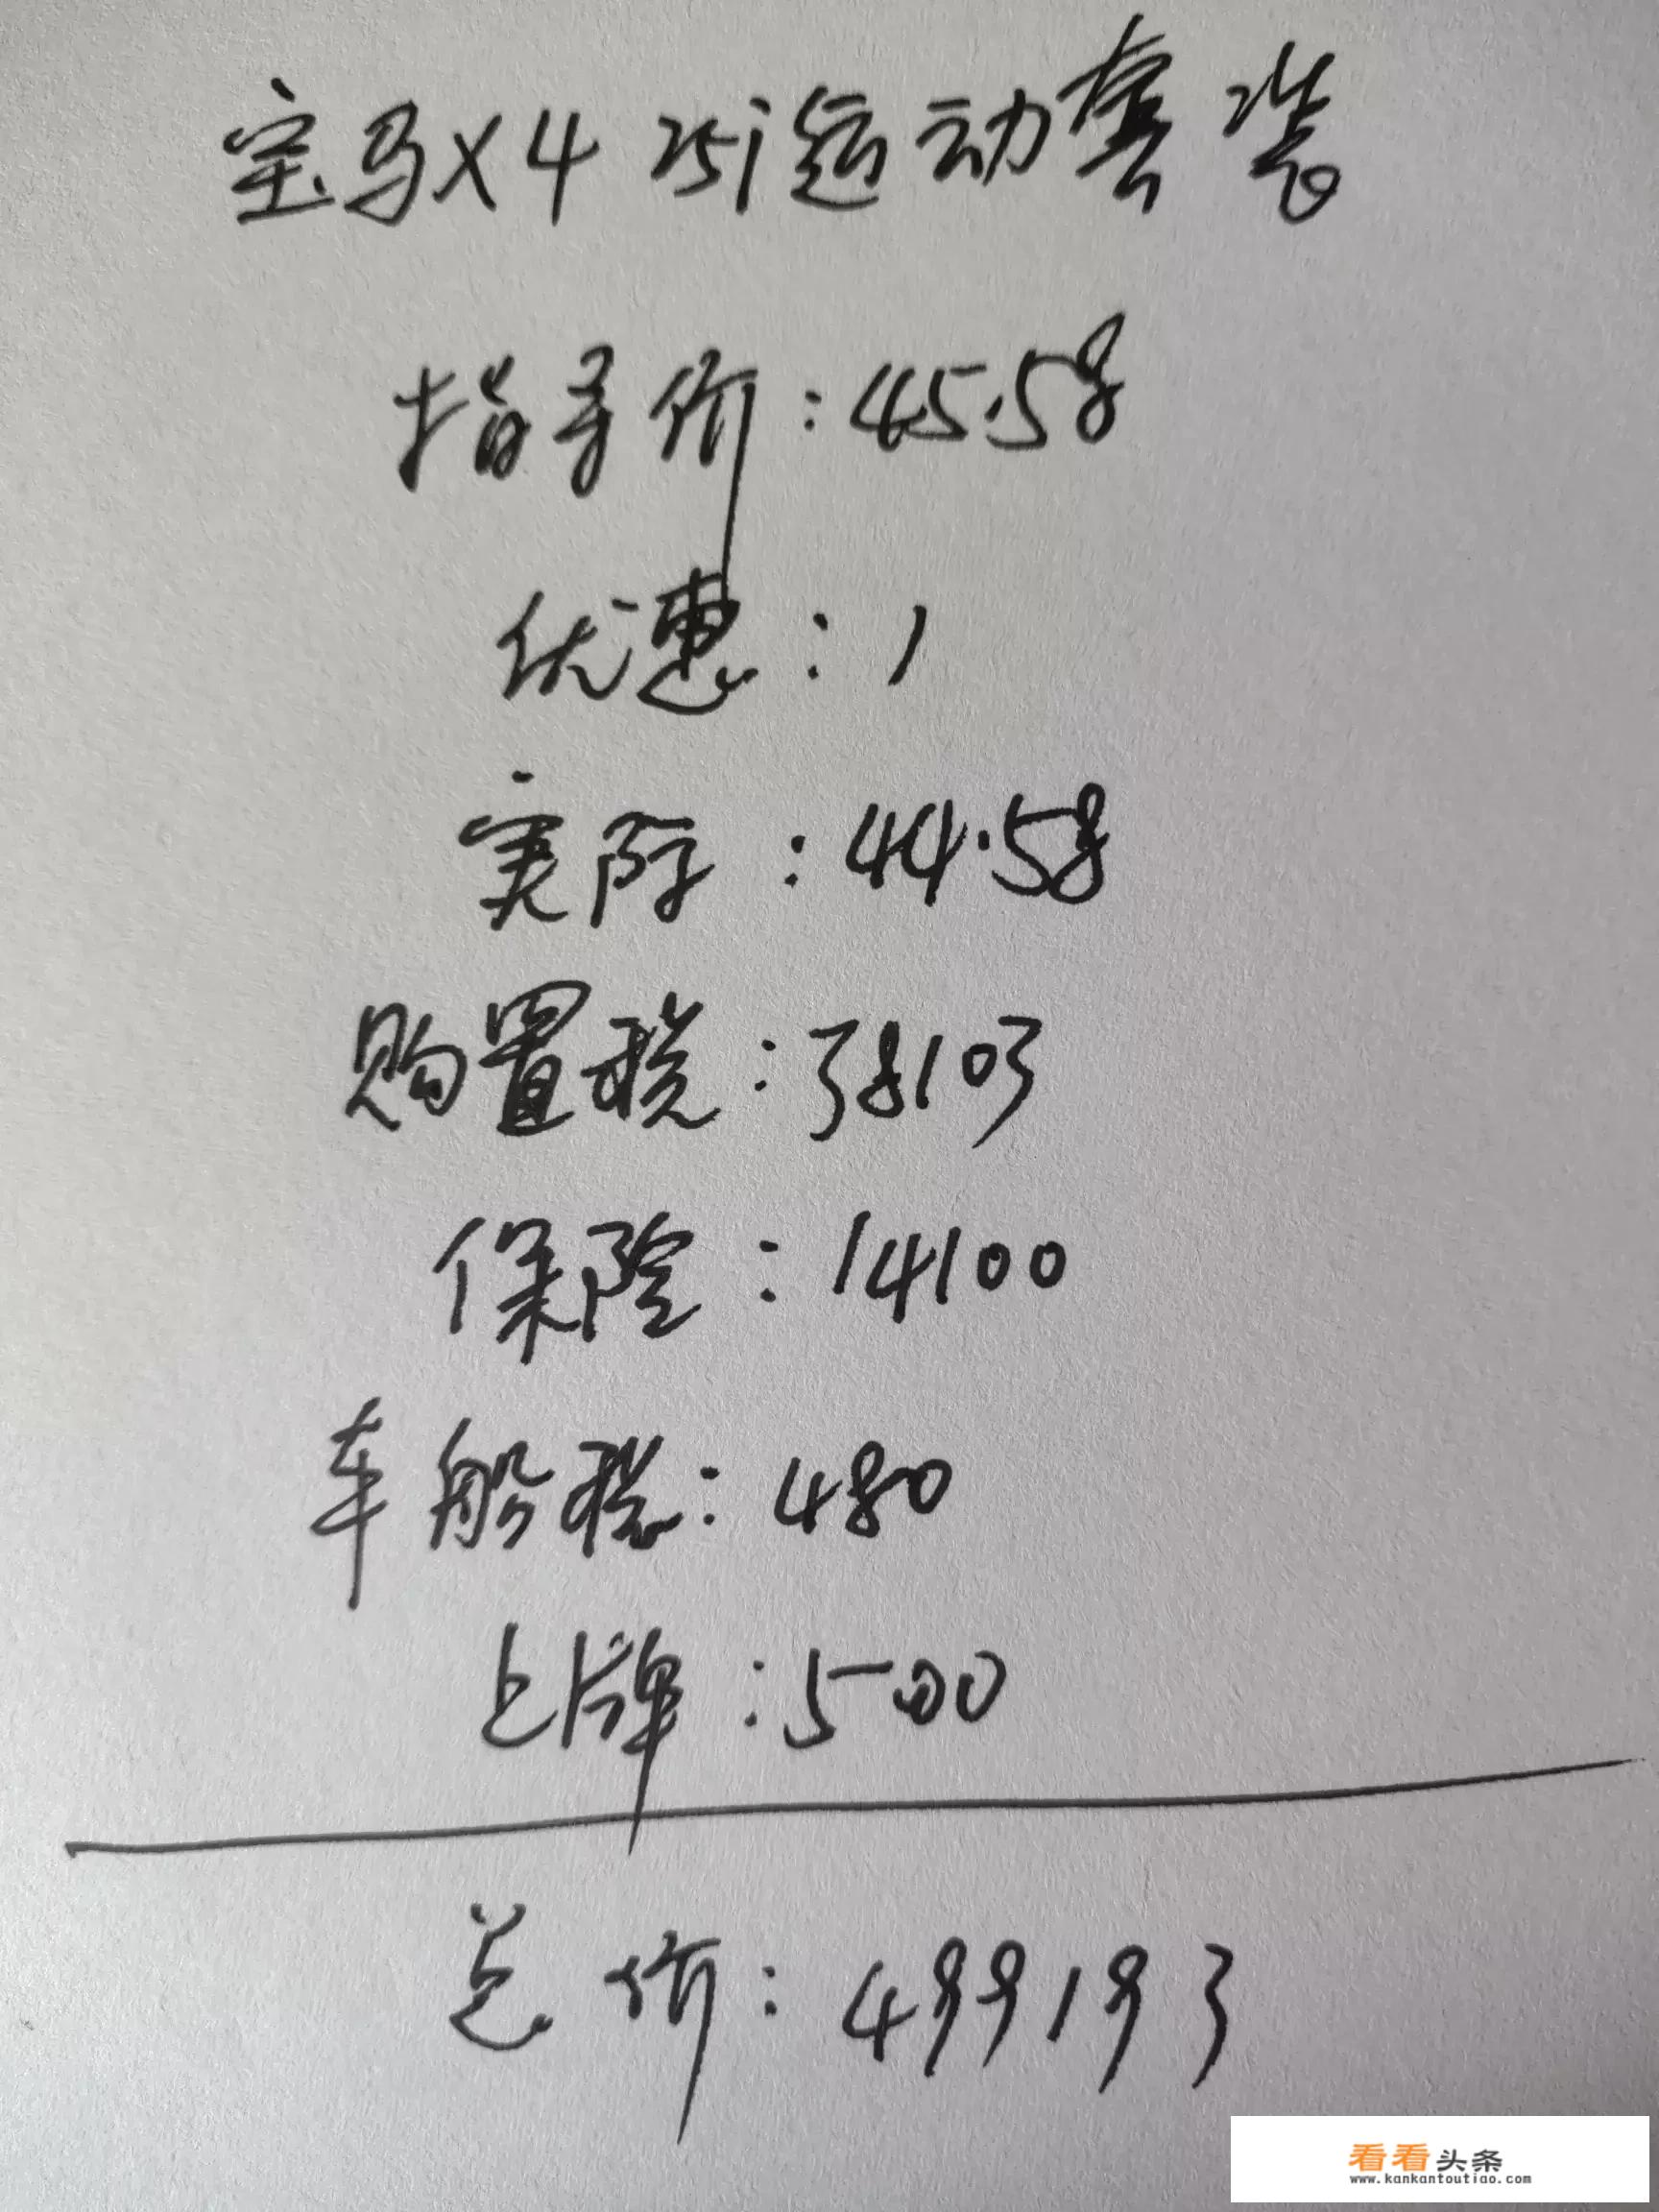 宝马X4 25i运动套装
指导价:45.58
优惠:1
实际:44.58
购置税:38103
保险:14100
车船税:480
上牌:500
总价:499193
看看头条
www.kankantoutiao.com